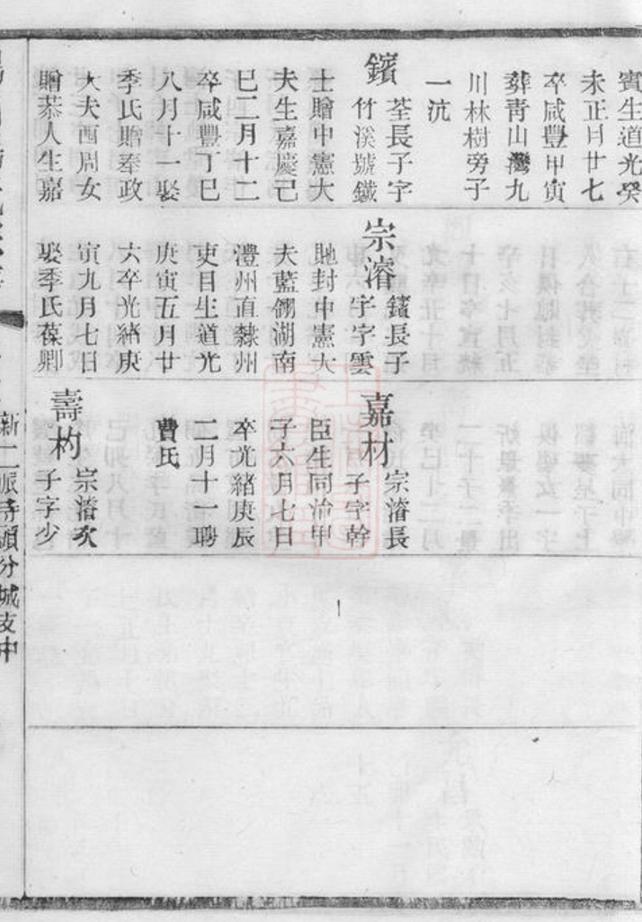 賓生道光癸
未正月廿七
卒咸豐甲寅
葬青山灣九
川林樹旁子
一沆
鑌
荃長子字
竹溪號鐵
士贈中憲大
夫生嘉慶己
巳二月十二
卒咸豐丁巳
八月十一娶
季氏贈奉政
大夫酉周女
贈恭人生嘉
宗濬
鑌長子
字字雲
貤封中憲大
夫藍翎湖南
澧州直隸州
吏目生道光
庚寅五月廿
六卒光緒庚
寅九月七日
娶季氏葆卿
嘉材
宗濬長
子字幹
臣生同治甲
子六月七日
卒光緒庚辰
二月十一聘
費氏
壽杓
宗濬次
子字少
新二派時碩分城支中